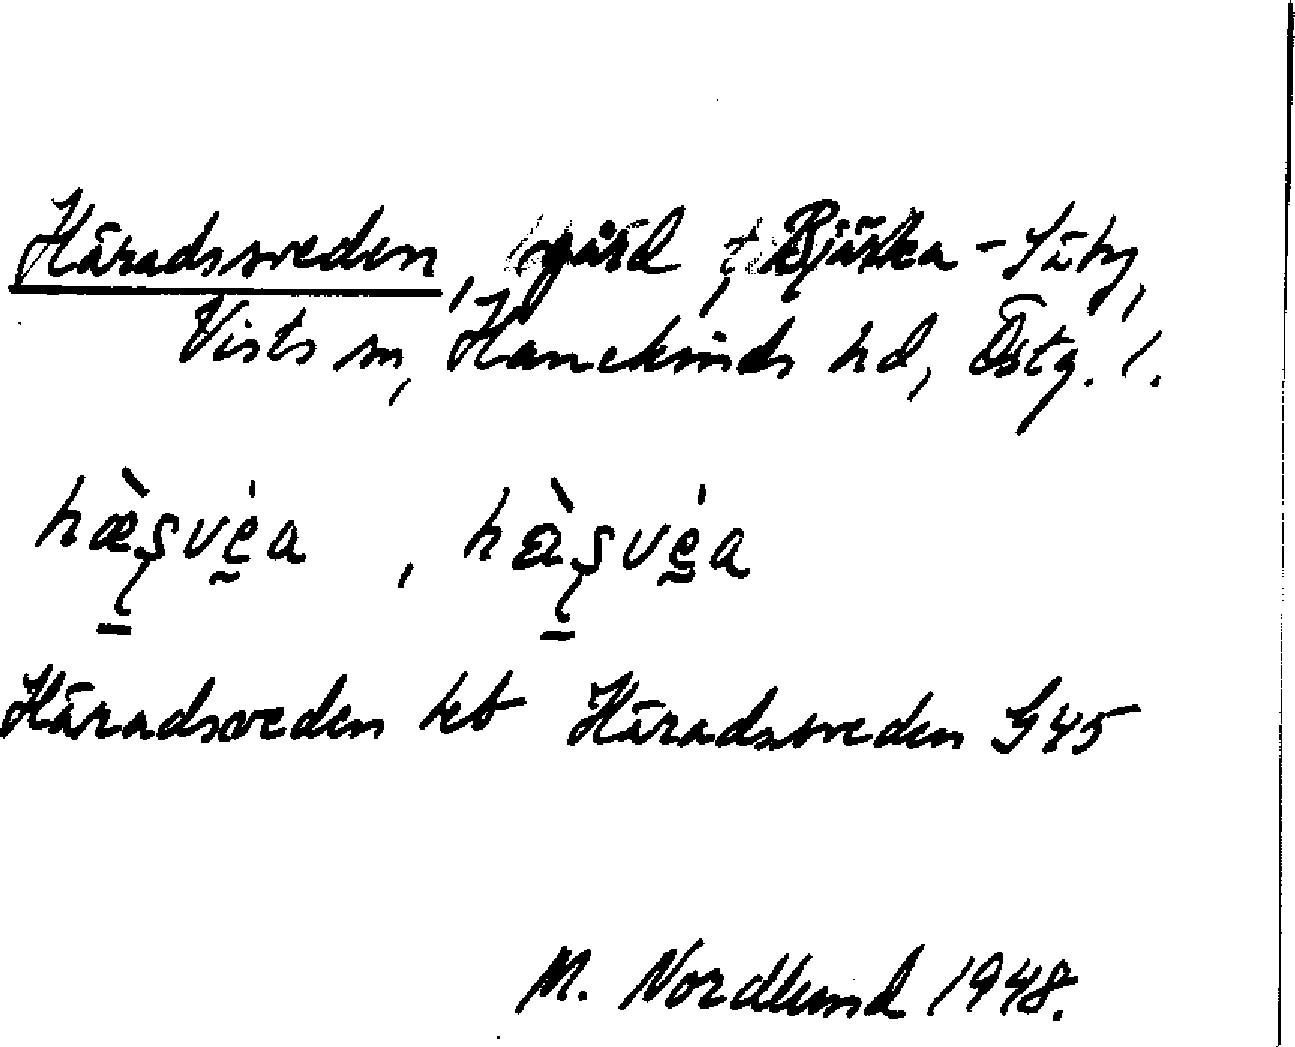 Häradssveden, gård, Bjärka-Säby,
Vists sn, Hanekinds hd, Östg. l.
hæ̀ʂvḛ́a, hàʂvḛ́a
Häradsveden kb Häradssveden G 45
M. Nordlund 1948.